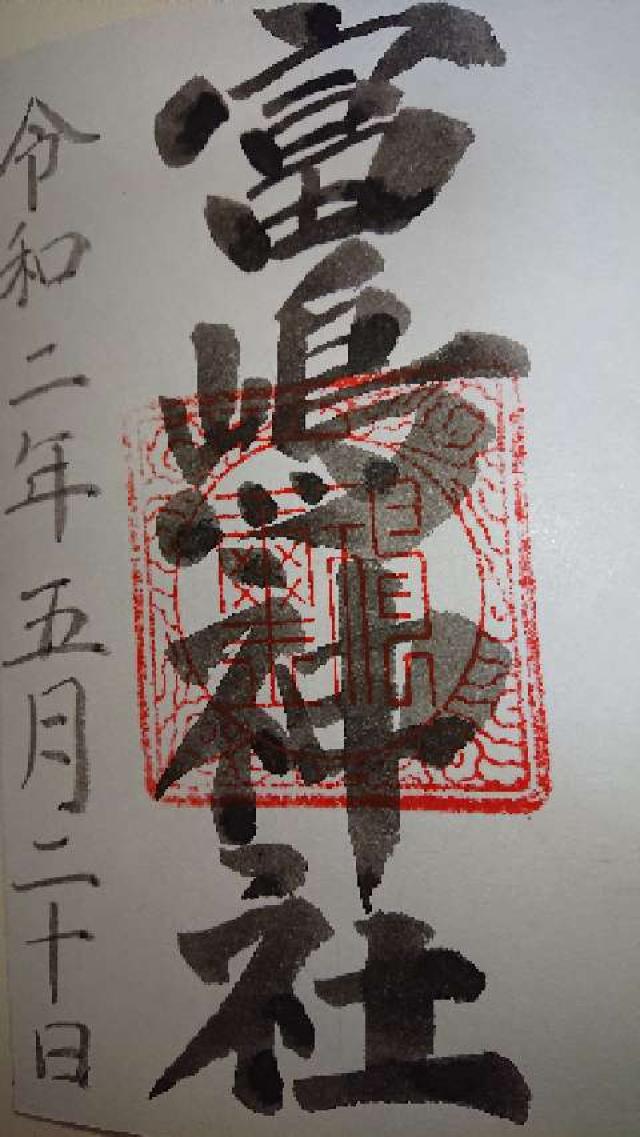 富嶋神社
令和二年五月二十日